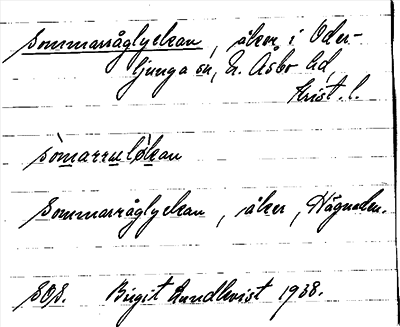 Sommarråglyckan, åker i Oder-
ljunga sn, N. Åsbo hd,
Krist. l.
sòmarruløkan
Sommarråglyckan, åker, Vågnaden.
SOS. Birgit Lundkvist 1938.